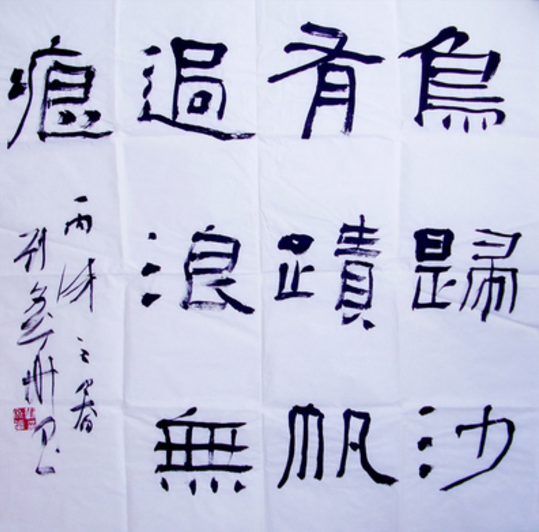 鳥歸沙
有蹟帆
過浪無
痕
丙戌之春